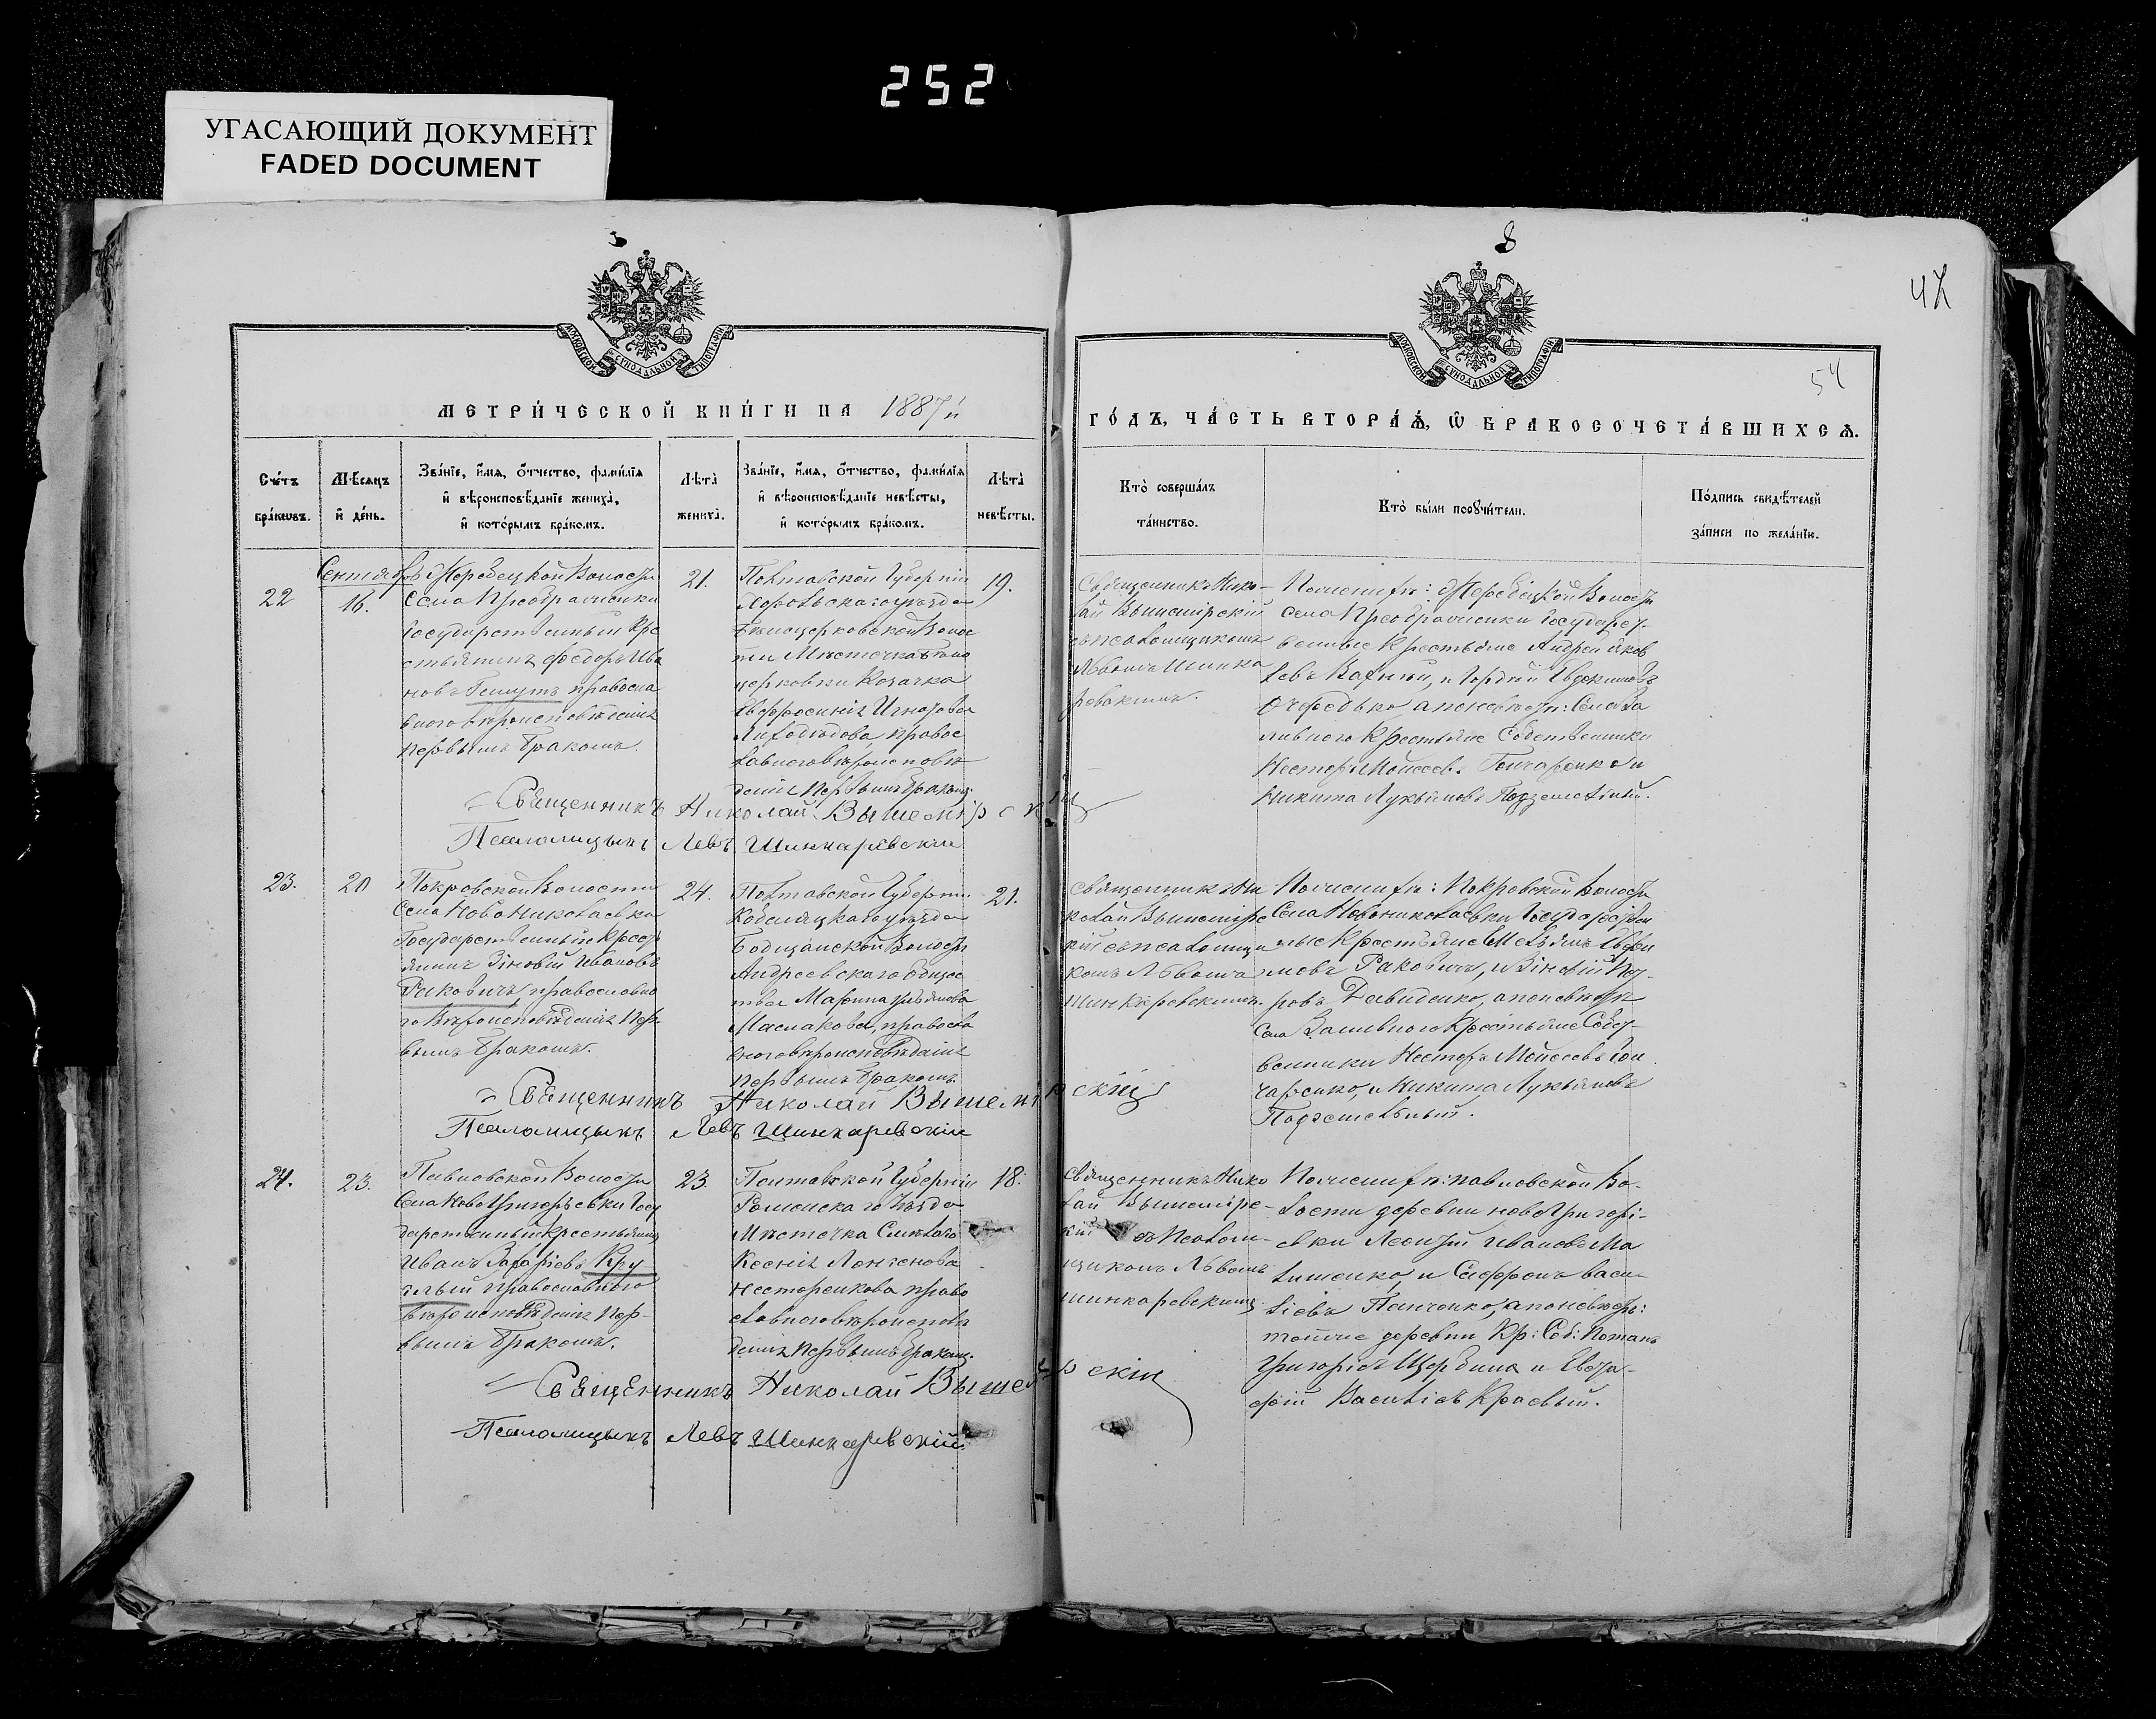 252
УГАСАЮЩИЙ ДОКУМЕНТ
FADED DOCUMENT
8
47
54
МЕТРИ́ЧЕСКОЙ КНИ́ГИ НА 1887й
ГО́ДЪ, ЧА́СТЬ ВТОРА́Ѧ, Ѽ БРАКОСОЧЕТА́ВШИХСѦ.
Сче́тъ бра́кѡвъ.
Мѣ́сѧцъ и҆ де́нь.
Зва́нїе, и҆́мѧ, ѻ҆́тчество, фами́лїѧ
и҆ вѣроисповѣ́данїе жениха̀,
и҆ кото́рымъ бра́комъ.
Лѣ́та жениха̀.
Зва́нїе, и҆́мѧ, ѻ҆́тчество, фами́лїѧ
и҆ вѣроисповѣ́данїе невѣ́сты,
и҆ кото́рымъ бра́комъ.
Лѣ́та невѣ́сты.
Кто̀ соверша́лъ
та́инство.
Кто̀ бы́ли порꙋчи́тели.
По́дпись свидѣ́телей
за́писи по жела́нїю.
22
Сентябрь
16.
Жеребецкой Волости
Села Преображенки
Государственный Кре
стьянинъ Федоръ Ива
новъ православ
наго вѣроисповѣданія
первымъ бракомъ.
21.
Полтавской Губерніи
Хорольскаго уѣзда
Бѣлоцерковской Волос
ти Мѣстечка Бѣло
церковки Козачка
Евфросинія
православ
наго вѣроисповѣ
данія первымъ бракомъ.
19.
Священникъ Нико-
лай Вышемірскій
съ псаломщикомъ
Львомъ Шинка
ревскимъ.
По женихѣ: Жеребецкой Волости
села Преображенки Государст-
венные Крестьяне Андрей Яков
левъ и Гордій Евдокимовъ
Очередько а по невѣстѣ: Села За
ливного Крестьяне Собственники
Несторъ Моисеевъ Гончаренко и
Никита Лукьяновъ Подземельный.
Священникъ Николай Вышемірскій
Псаломщикъ Левъ Шинкаревскій
23.
20
Покровской Волости
Села Новониколаевки
Государственный Крест
янинъ Зіновій Ивановъ
Раковичъ православна
го вѣроисповѣданія пер
вымъ бракомъ.
24.
Полтавской Губерніи
Кобеляцкаго уѣзда
Волости
Андреевскаго Общес
тва Марина
Маслакова, правосла
внаго вѣроисповѣданія
первымъ бракомъ.
21.
Священникъ Ни
колай Вышемірс
кій съ псаломщи
комъ Львомъ
Шинкаревскимъ.
По женихѣ: Покровской Волости
Села Новониколаевки Государствен
ные Крестьяне Емельянъ
Раковичъ, и Зіновій Пет-
ровъ Давиденко, а по невѣстѣ
Села Заливного Крестьяне Собст-
венники Несторъ Моисеевъ Гон
чаренко, и Никита Лукьяновъ
Подземельный.
Священникъ Николай Вышемірскій
Псаломщикъ Левъ Шинкаревскій
24.
23.
Павловской Волости
Села Новогригорьевки Госу
дарственный Крестьянинъ
Иванъ Захаріевъ Кру
глый православнаго
вѣроисповѣданія пер-
вымъ бракомъ.
23.
Полтавской Губерніи
Роменскаго Уѣзда
Мѣстечка Смѣлаго
Ксенія
Нестеренкова право
славнаго вѣроисповѣ
данія первымъ бракомъ.
18.
Священникъ Нико
лай Вышемірс-
кій съ Псалом-
щикомъ Львомъ
Шинкаревскимъ
По женихѣ: Павловской Во-
лости деревни Новогригорі-
евки Леонтій Ивановъ Ма
лишенко, и Сафронъ Васи-
ліевъ Панченко, а по невѣстѣ:
тойже деревни Кр: Соб: Потапъ
Григоріевъ Щербина и Евста-
фій Василіевъ Краевый.
Священникъ Николай Вышемірскій
Псаломщикъ Левъ Шинкаревскій